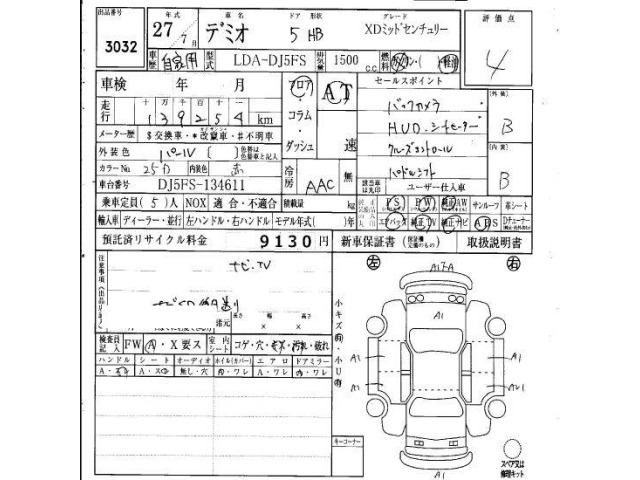 出品番号 年式 車名 ドア 形状 グレード 評価点
3032 27年7月 デミオ 5 HB XDミッドセンチュリー 4
車歴 自家用 型式 LDA-DJ5FS 排気量 1500 C.C. 燃料
車検 年 月 フロア AT セールスポイント
走行 十万千百十 139254 km コラム バックカメラ 【外装】 B
メーター歴 $交換車・*改竄車・#不明車 ダッシュ 速 HUD.シートヒーター
外装色 パール 〔 〕 色替は色替車と記入 クルーズコントロール 【内装】
カラーNo. 25D 内装色 赤 冷房 AAC 無 パドルシフト B
車台番号 DJ5FS-134611 ユーザー仕入車
乗車定員(5)人 NOX 適合・不適合 積載量 kg PS PW 純正AW サンルーフ 革シート
輸入車 ディーラー・並行 左ハンドル・右ハンドル モデル年式( )年 エアバッグ 純正TV 純正ナビ ABS
預託済リサイクル料金 9130円 新車保証書 取扱説明書
注意事項(出品店より) ナビ.TV 左 右
長さ 幅 高さ
諸元 × ×
検査員記入 FW A・X要ス 室内シート コゲ・穴・キズ・汚れ・破れ
ハンドル シート オーディオ ホイル(カバー) エアロ ドアミラー
A・スレ A・スレ 無し・穴 A・ワレ A・ワレ A・ワレ
小キズ有・小U有
キーコーナー
A1
A1
A1
A1
A1
A1
スペア又は修理キット